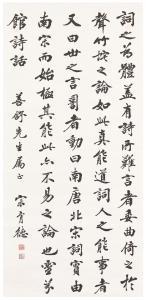 詞之為體蓋有詩所難言者委曲倚之於
聲竹垞之論如此真能道詞人之能事者
又曰世之言詞者動曰南唐北宋詞實由
南宋而始極其能此亦不易之論也靈芬
館詩話
善舒先生属正